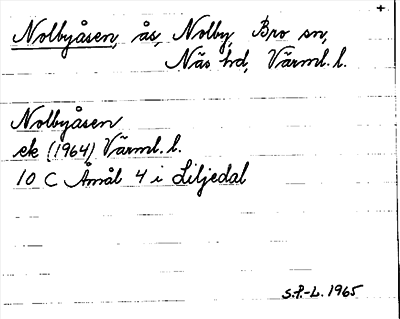 +
Nolbyåsen, ås, Nolby, Bro sn,
Näs hd, Värml. l.
Nolbyåsen
ek (1964) Värml. l.
10 C Åmål 4 i Liljedal
S.P.-L. 1965